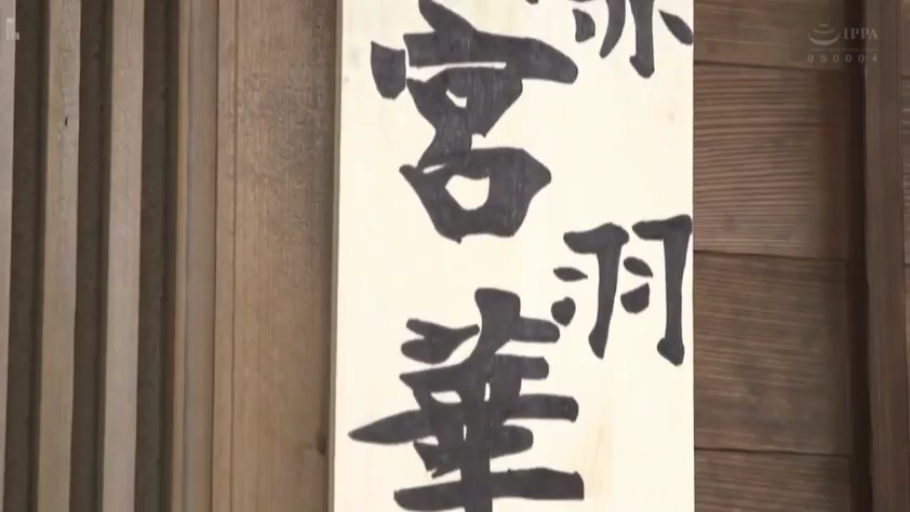 赤羽
宮華
IPPA
050004